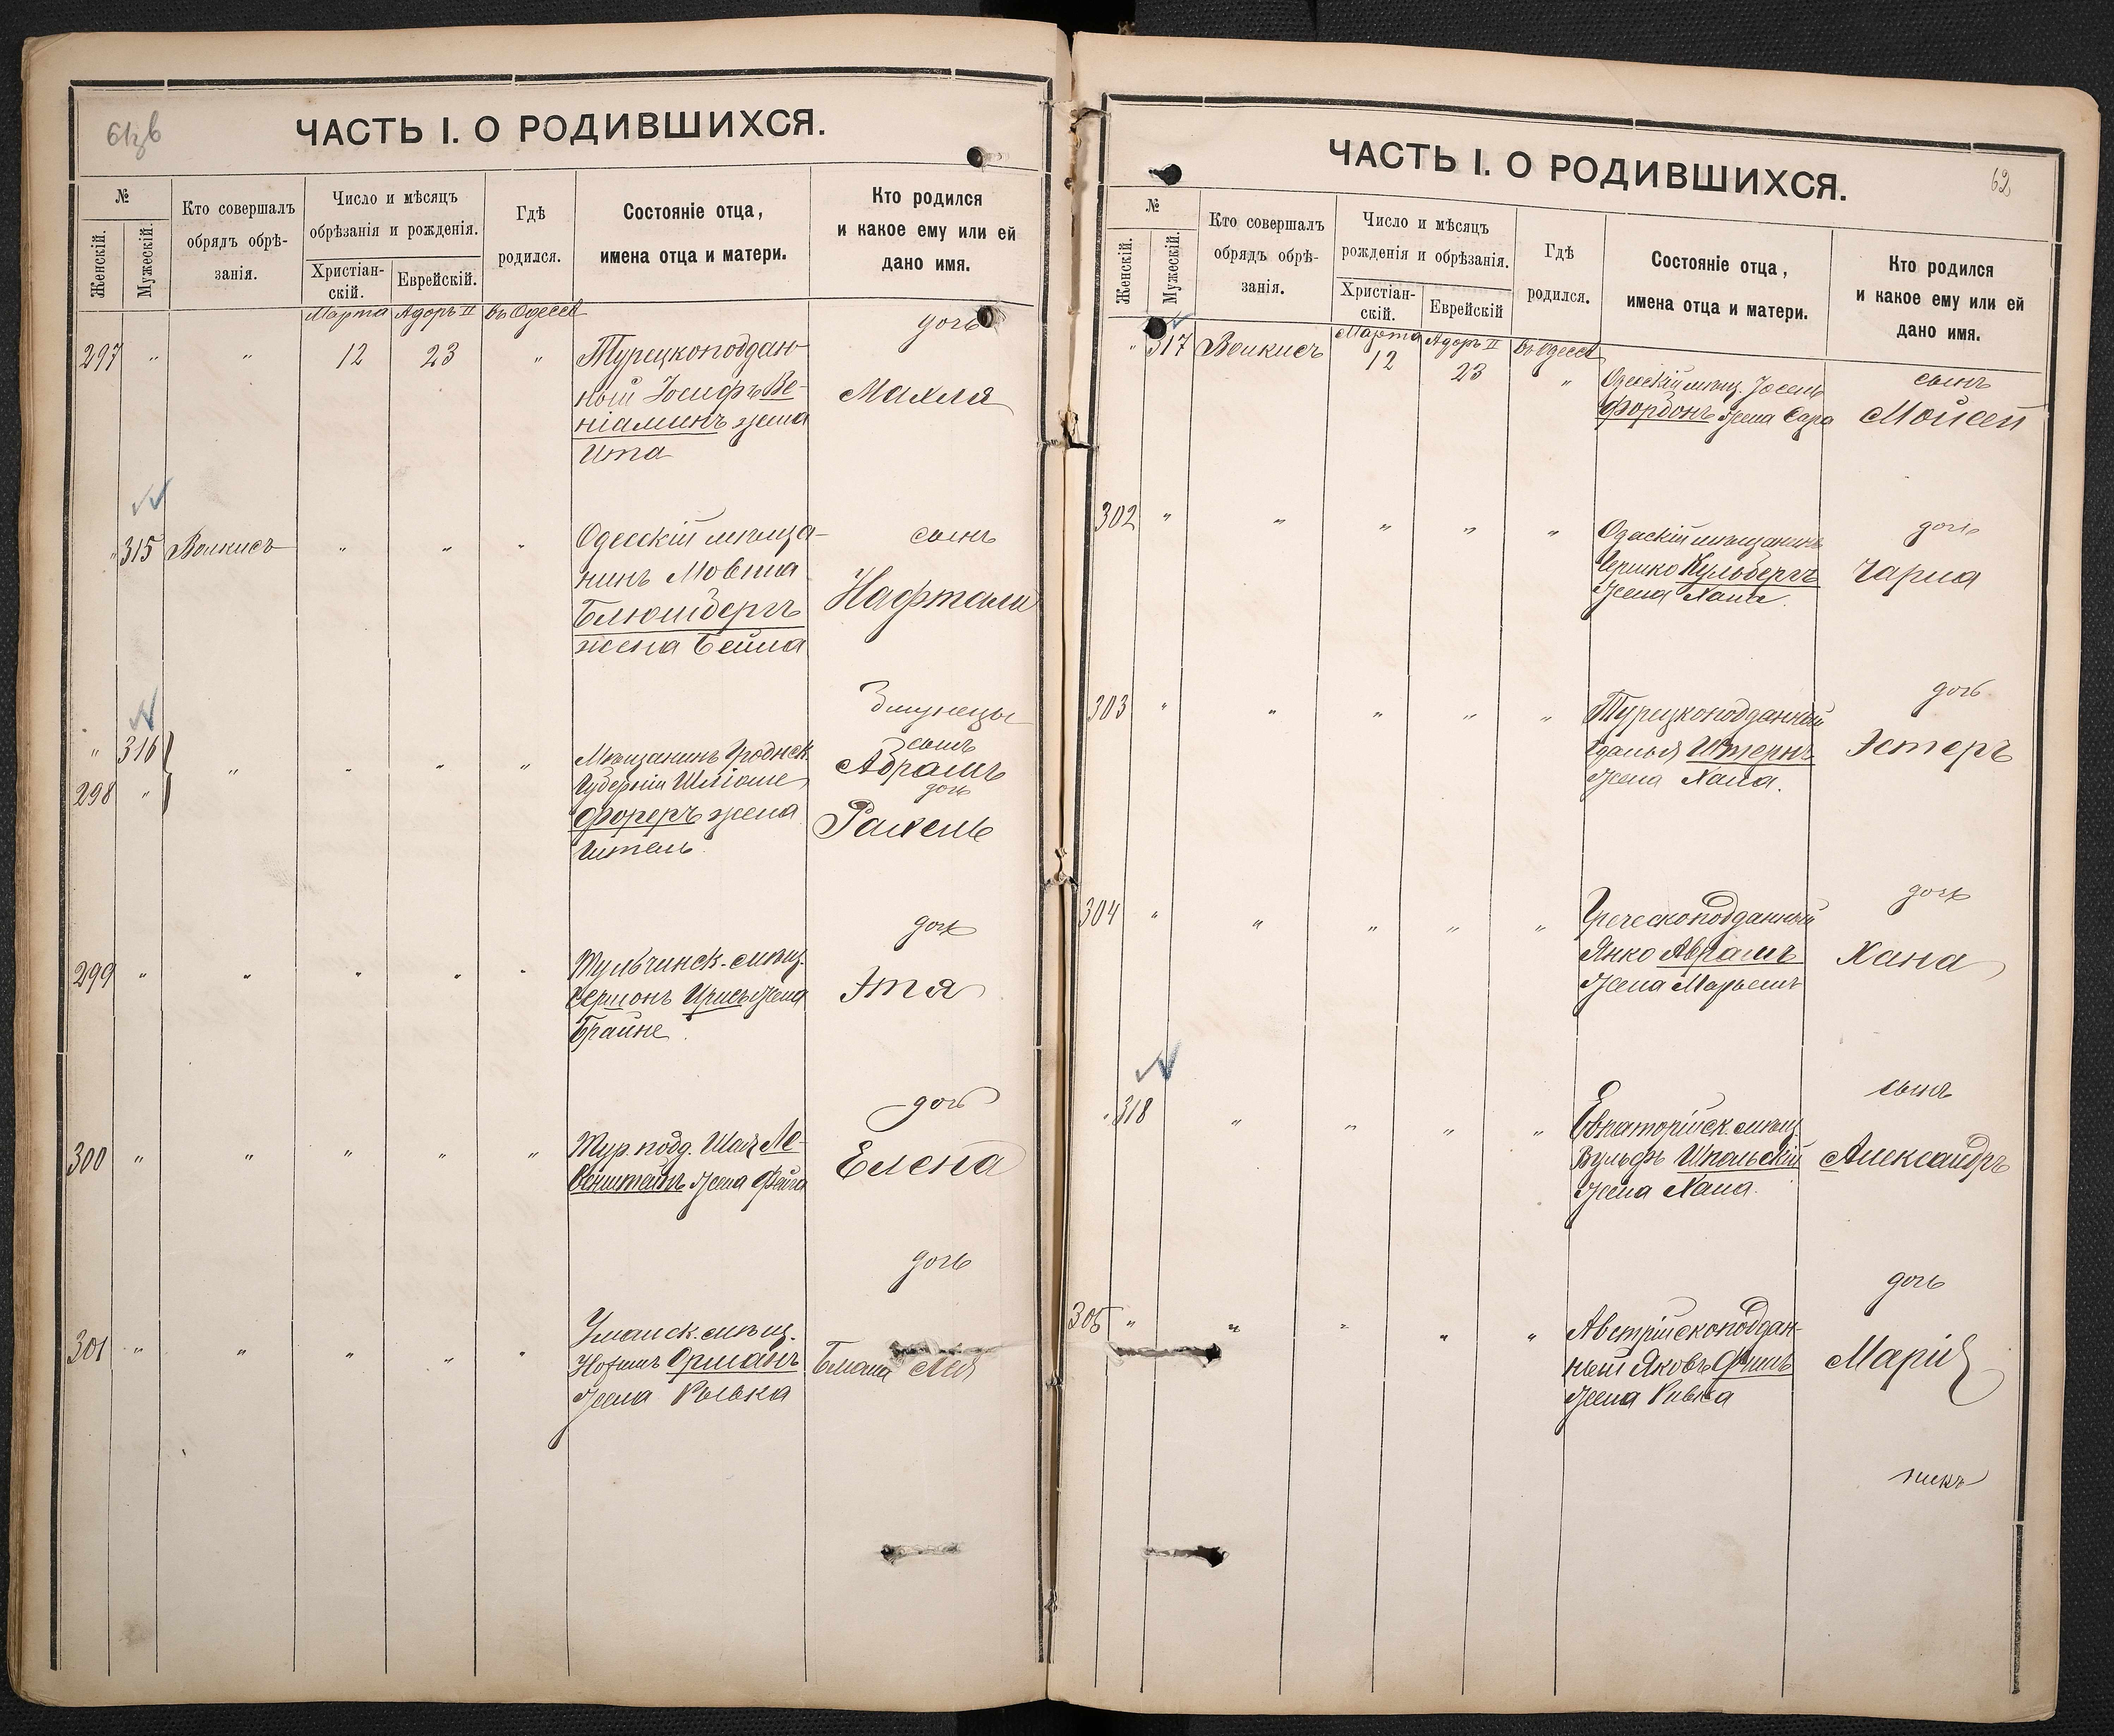 ЧАСТЬ I. О РОДИВШИХСЯ.
№
Женскій.
Мужескій.
Кто совершалъ
обрядъ обрѣ-
занія.
Число и мѣсяцъ
обрѣзанія и рожденія.
Христіан-
скій.
Еврейскій.
Гдѣ
родился.
Состояніе отца,
имена отца и матери.
Кто родился
и какое ему или ей
дано имя.
Марта Адоръ II въ Одессѣ
297 " " 12 23 "
Турецкоподдан-
ный Іосифъ Ве-
ніаминъ жена
Ита
дочь
Махля
" 315 Волкисъ " " "
Одесскій мѣща-
нинъ Мовша
Блюмбергъ
жена Бейла
сынъ
Нафтали
" 316
298 "
" " " "
Мѣщанинъ Гроднск.
Губерніи Шліоме
Фореръ жена
Гитель
Близнецы
сынъ
Абрамъ
дочь
Рахель
299 " " " " "
Тульчинск. мѣщ.
жена
Брайне
дочь
Этя
300 " " " " "
Тур. подд. Шая Ле-
венштейнъ жена Фейга
дочь
Елена
301 " " " " "
Уманск. мѣщ.
Орманъ
жена Рывка
дочь
Блюма Лея
ЧАСТЬ I. О РОДИВШИХСЯ.
62
№
Женскій.
Мужескій.
Кто совершалъ
обрядъ обрѣ-
занія.
Число и мѣсяцъ
рожденія и обрѣзанія.
Христіан-
скій.
Еврейскій
Гдѣ
родился.
Состояніе отца,
имена отца и матери.
Кто родился
и какое ему или ей
дано имя.
Марта Адоръ II въ Одессѣ
" 317 Волкисъ 12 23 "
Одесскій мѣщ. Іосель
Фордонъ жена Сара
сынъ
Мойсей
302 " " " " "
Одесскій мѣщанинъ
Гершко Кульбергъ
жена Хана.
дочь
Чарна
303 " " " " "
Турецкоподданный
Гдалья Штернъ
жена Хана.
дочь
Эстеръ
304 " " " " "
Греческоподданный
Янко Авраамъ
жена
дочь
Хана
" 318 " " " "
Евпаторійск. мѣщ.
Вульфъ Шпольскій
жена Хана.
сынъ
Александръ
305 " " " " "
Австрійскоподдан-
ный Яковъ
жена Ривка
дочь
Марія